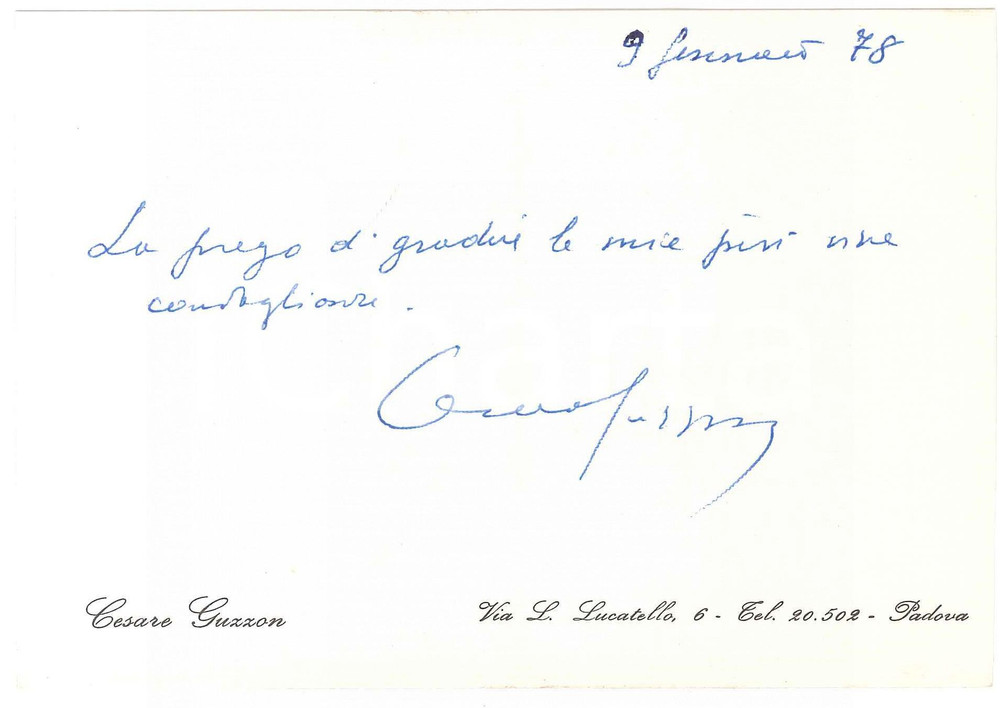 9 gennaio 78
La prego di gradire le mie più vive
condoglianze.
Cesare Guzzon
Cesare Guzzon
Via L. Lucatello, 6 - Tel. 20.502 - Padova